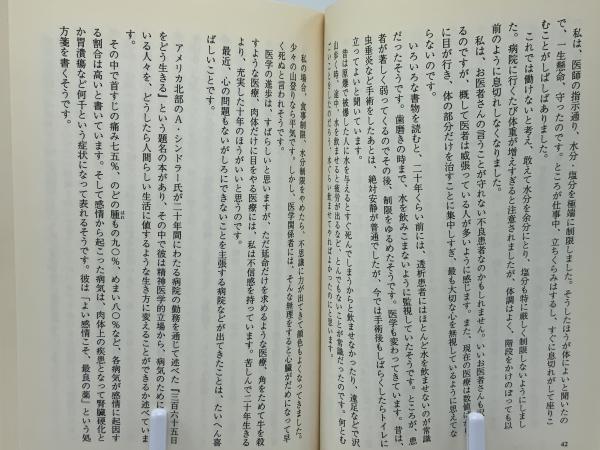 私は、医師の指示通り、水分・塩分を極端に制限しました。そうしたほうが体によいと聞いたの
で、一生懸命、守ったのです。ところが仕事中、立ちくらみはするし、すぐに息切れがして座りこ
むことがしばしばありました。
これでは働けないと考え、敢えて水分を余分にとり、塩分も特に厳しく制限しないようにしまし
た。病院に行くたび体重が増えすぎると注意されましたが、体調はよく、階段をかけのぼっても以
前のように息切れしなくなりました。
私は、お医者さんの言うことが守れない不良患者なのかもしれません。いいお医者さんも
るのですが、概して医者は威張っている人が多いように感じます。また、現在の医療は数値に
に目が行き、体の部分だけを治すことに集中しすぎ、最も大切な心を無視しているように思えてな
らないのです。
いろいろな書物を読むと、二十年くらい前には、透析患者にはほとんど水を飲ませないのが常識
だったそうです。歯磨きの時まで、水を飲みこまないように監視していたそうです。ところが、患
者が著しく弱ってくるのでその後、制限をゆるめたそうです。医学も変わってきています。昔は、
虫垂炎など手術をしたあとは、絶対安静が普通でしたが、今では手術後もしばらくしたらトイレに
立ってよいと聞いています。
昔は原爆で被爆した人に水を与えるとすぐ死んでしまうからと飲ませなかったり、遠足などで沢
山歩く時、途中、水を飲ませると疲労が出るなど、とんでもないことが常識だったのです。何とむ
42
私の場合、食事制限、水分制限をやめたら、不思議に力が出てきて顔色もよくなってきました。
少々の山登りなら平気です。しかし、医学関係者には、そんな無理をすると心臓がだめになって早
く死ぬと言われそうです。
医学の進歩は、すばらしいと思いますが、ただ延命だけを求めるような医療、角をためて牛を殺
すような医療、肉体だけに目をやる医療には、私は不信感を持っています。苦しんで二十年生きる
より、充実した十年のほうがいいと思うのです。
最近、心の問題もないがしろにできないことを主張する病院などが出てきたことは、たいへん喜
ばしいことです。
アメリカ北部のA・シンドラー氏が二十年間にわたる病院の勤務を通じて述べた『三百六十五日
をどう生きる』という題名の本があり、その中で彼は精神医学的立場から、病気のために
いる人々を、どうしたら人間らしい生活に値するような生き方に変えることができるか述べていま
す。
その中で首すじの痛み七五％、のどの腫もの九〇％、めまい八〇％など、各病気が感情に起因す
る割合は高いと書いています。そして感情から起こった病気は、肉体上の疾患となって腎臓硬化と
か胃潰瘍など何千という症状になって表れるそうです。彼は「よい感情こそ、最良の薬」という処
方箋を書くそうです。